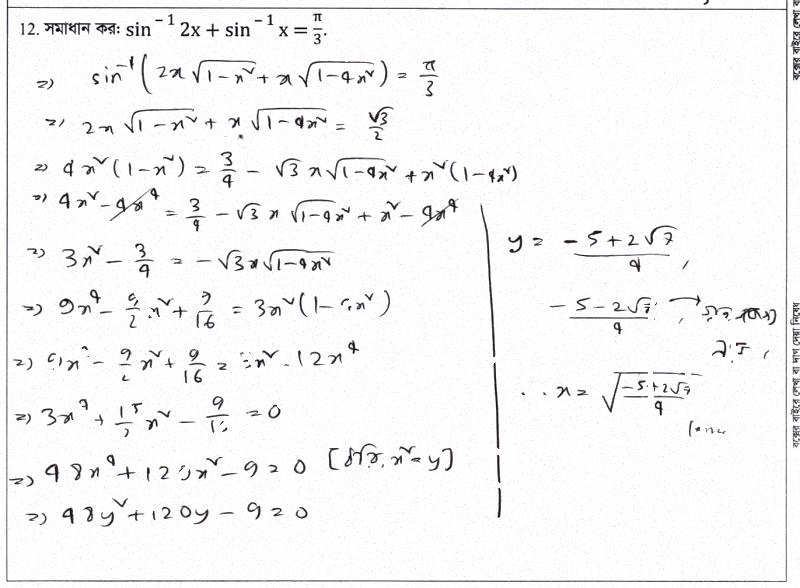 12. সমাধান কর: sin⁻¹ 2x + sin⁻¹ x = π/3.
=> sin⁻¹(2x√(1-x²) + x√(1-4x²)) = π/3
=> 2x√(1-x²) + x√(1-4x²) = √3/2
=> 4x²(1-x²) = 3/4 - √3 x√(1-4x²) + x²(1-4x²)
=> 4x² - 4x⁴ = 3/4 - √3 x √(1-4x²) + x² - 4x⁴
=> 3x² - 3/4 = -√3x√(1-4x²)
=> 9x⁴ - 9/2 x² + 9/16 = 3x²(1- x²)
=> 9x - 9/2 x² + 9/16 = x² - 12x⁴
=> 3x⁴ + 15/2 x² - 9/ = 0
=> 48x⁴ + 120x² - 9 = 0 [ধরি, x² = y]
=> 48y² + 120y - 9 = 0
y = (-5+2√7)/4,
(-5-2√7)/4,
∴ x = √((-5+2√7)/4)
বক্সের বাইরে লেখা বা দাগ দেয়া নিষেধ